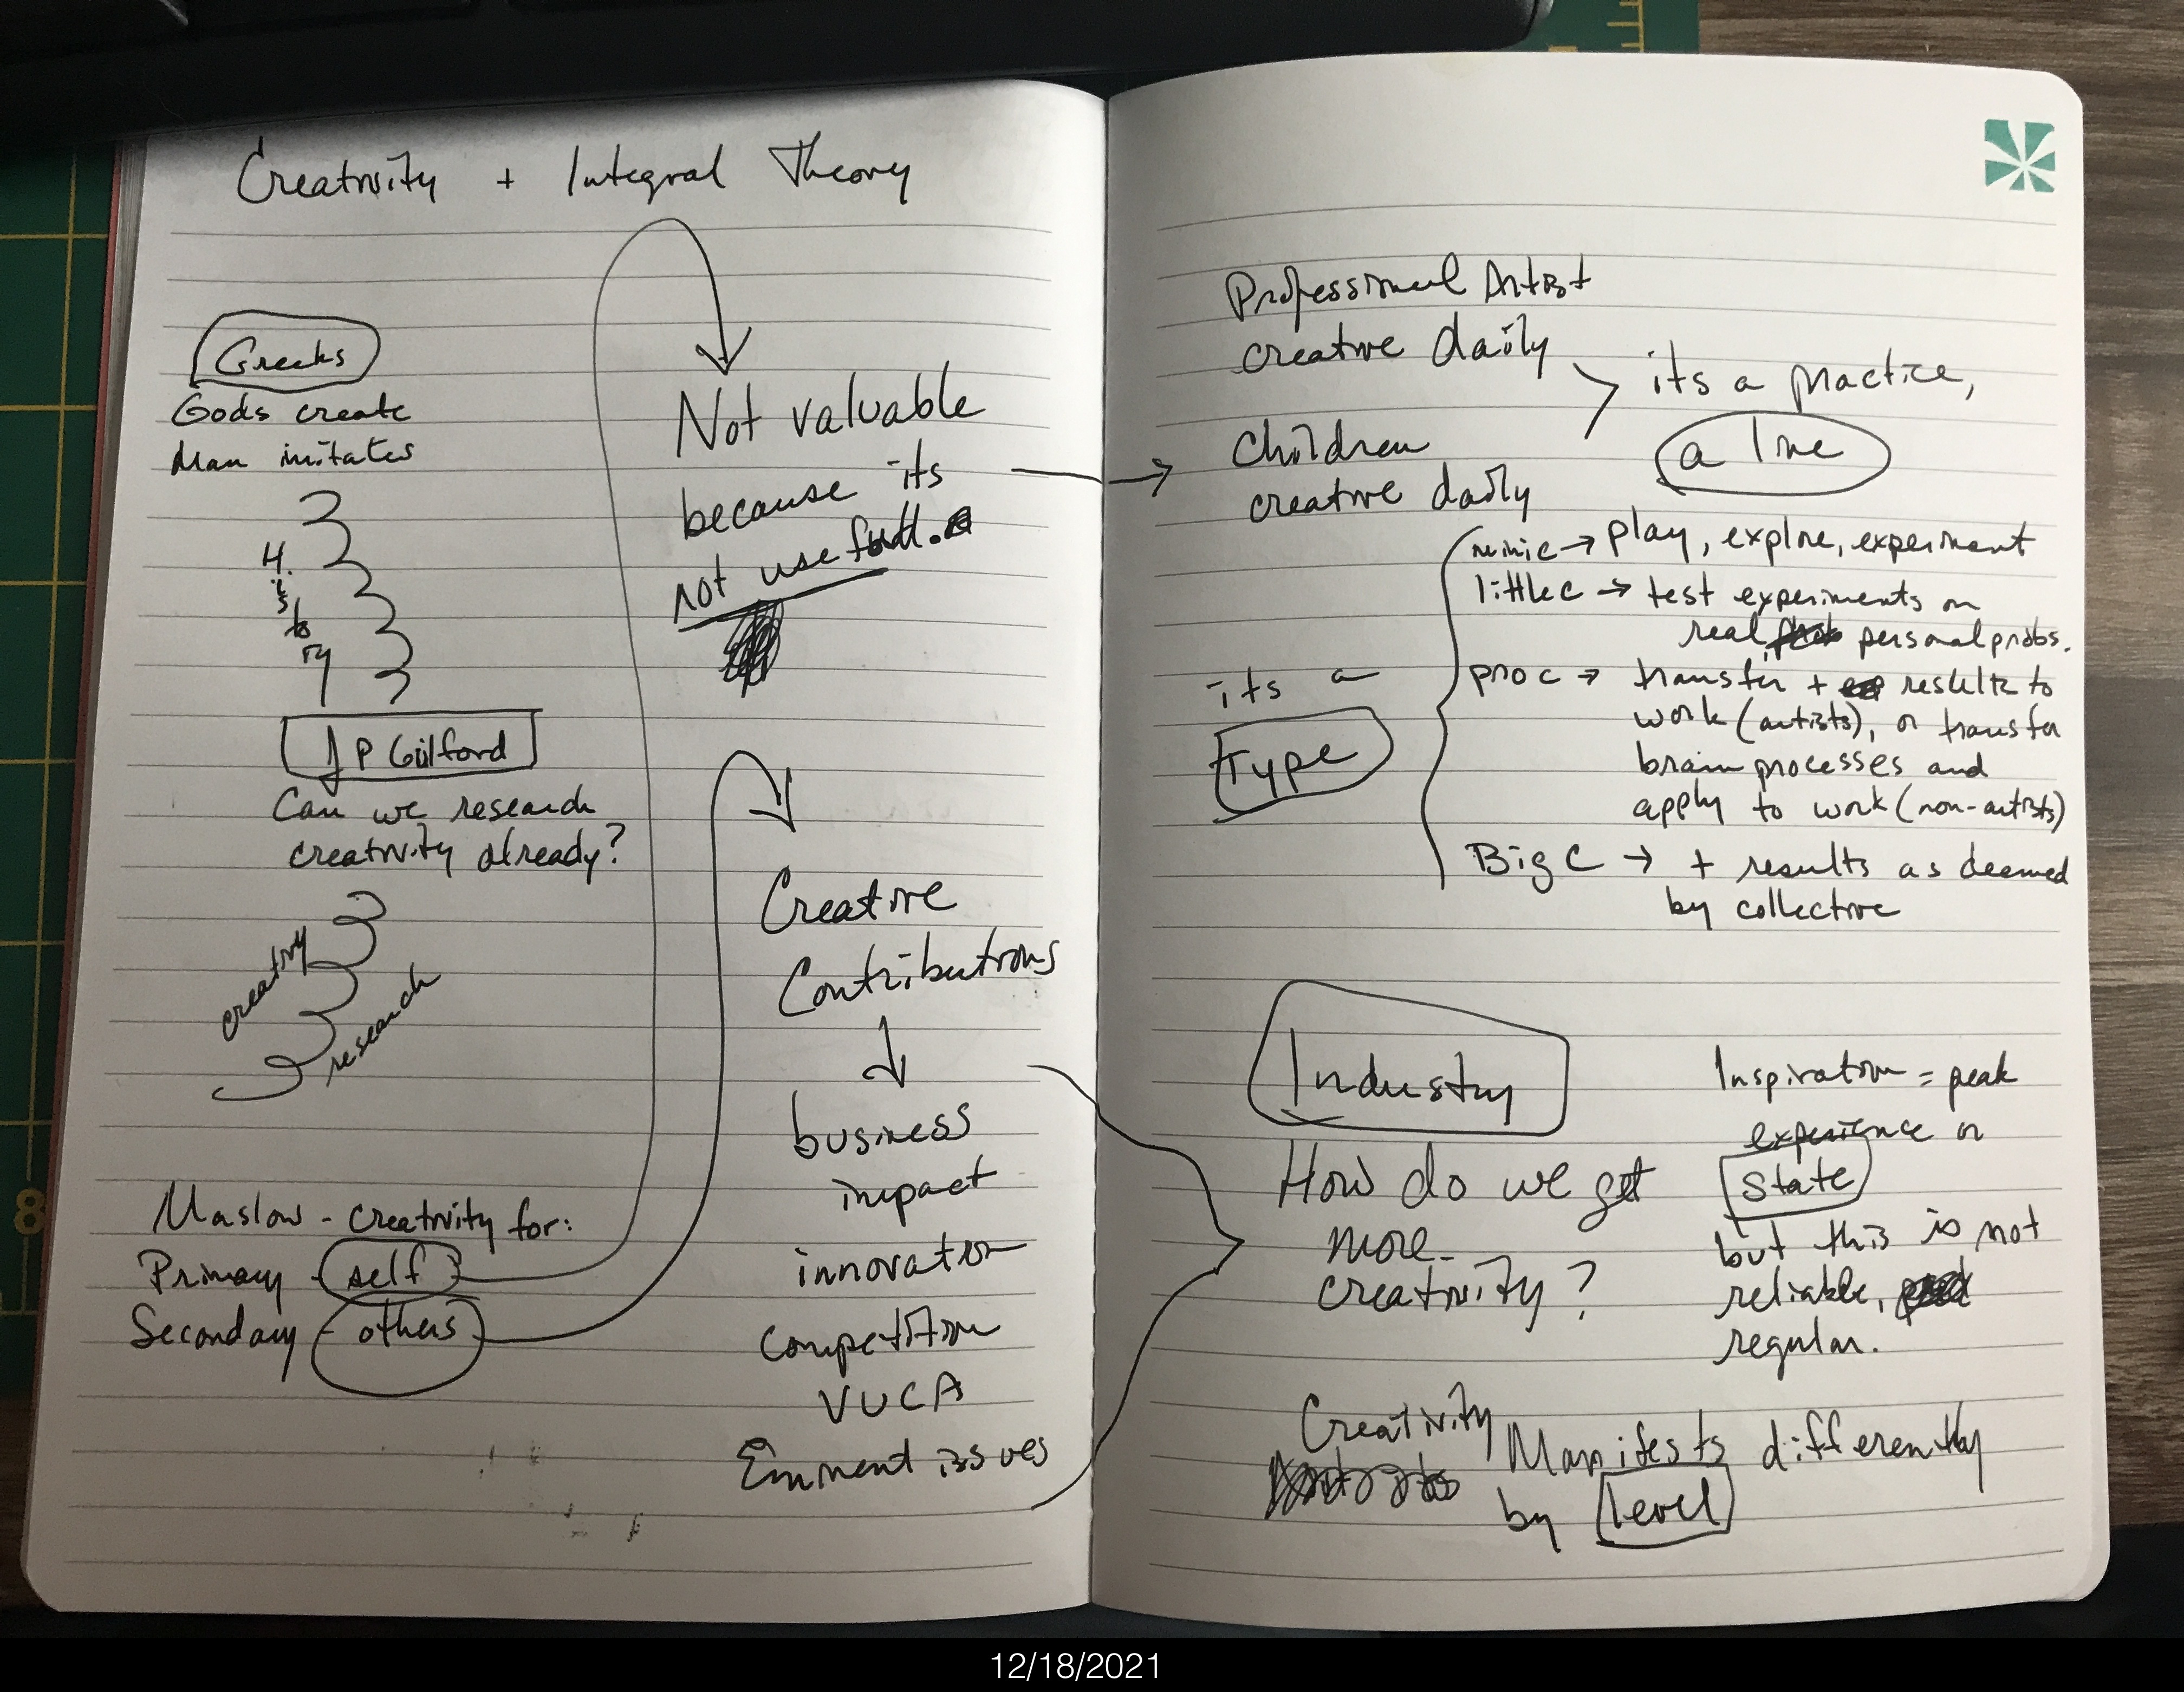 Creativity + Integral Theory
Greeks
Gods create
Man imitates
History
J P Guilford
Can we research
creativity already?
creativity
research
Maslow - creativity for:
Primary - self
Secondary - others
Not valuable
because its
not usefull.
Creative
Contributions
business
impact
innovation
competition
VUCA
Eminent issues
Professional Artist
creative daily
its a practice,
a line
Children
creative daily
its a
Type
mini c → play, explore, experiment
little c → test experiments on
real personal probs.
pro c → transfer + results to
work (artists), or transfer
brain processes and
apply to work (non-artists)
Big C → + results as deemed
by collective
Industry
How do we get
more
creativity?
Inspiration = peak
experience or
state
but this is not
reliable,
regular.
Creativity
Manifests differently
by level
12/18/2021